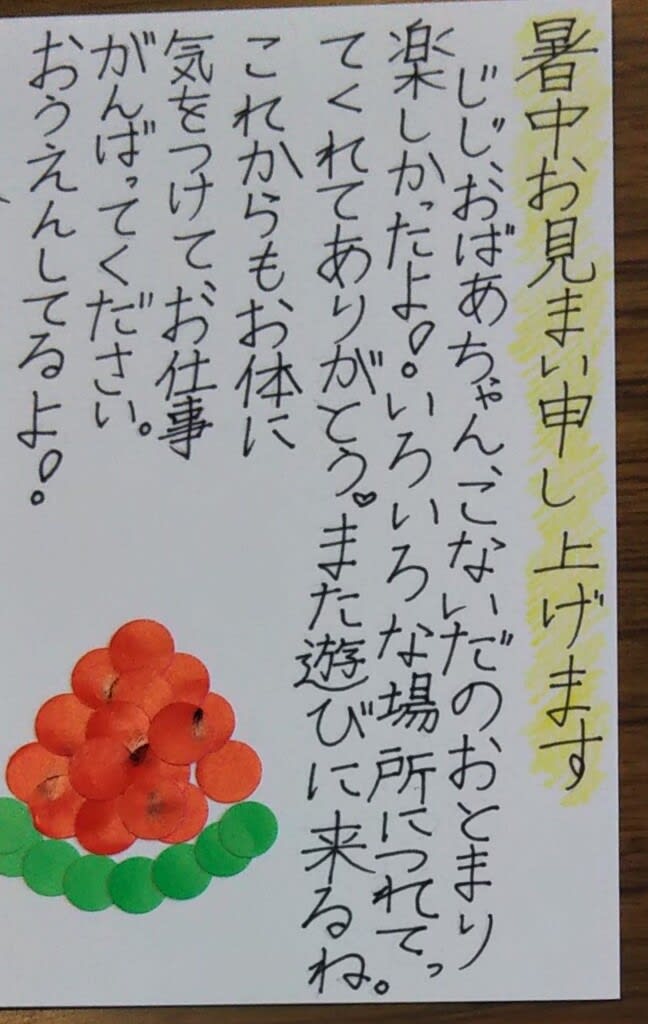 暑中お見まい申し上げます
じじ、おばあちゃん、こないだのおとまり
楽しかったよ!。いろいろな場所につれてっ
てくれてありがとう♥また遊びに来るね。
これからもお体に
気をつけて、お仕事
がんばってください。
おうえんしてるよ!。